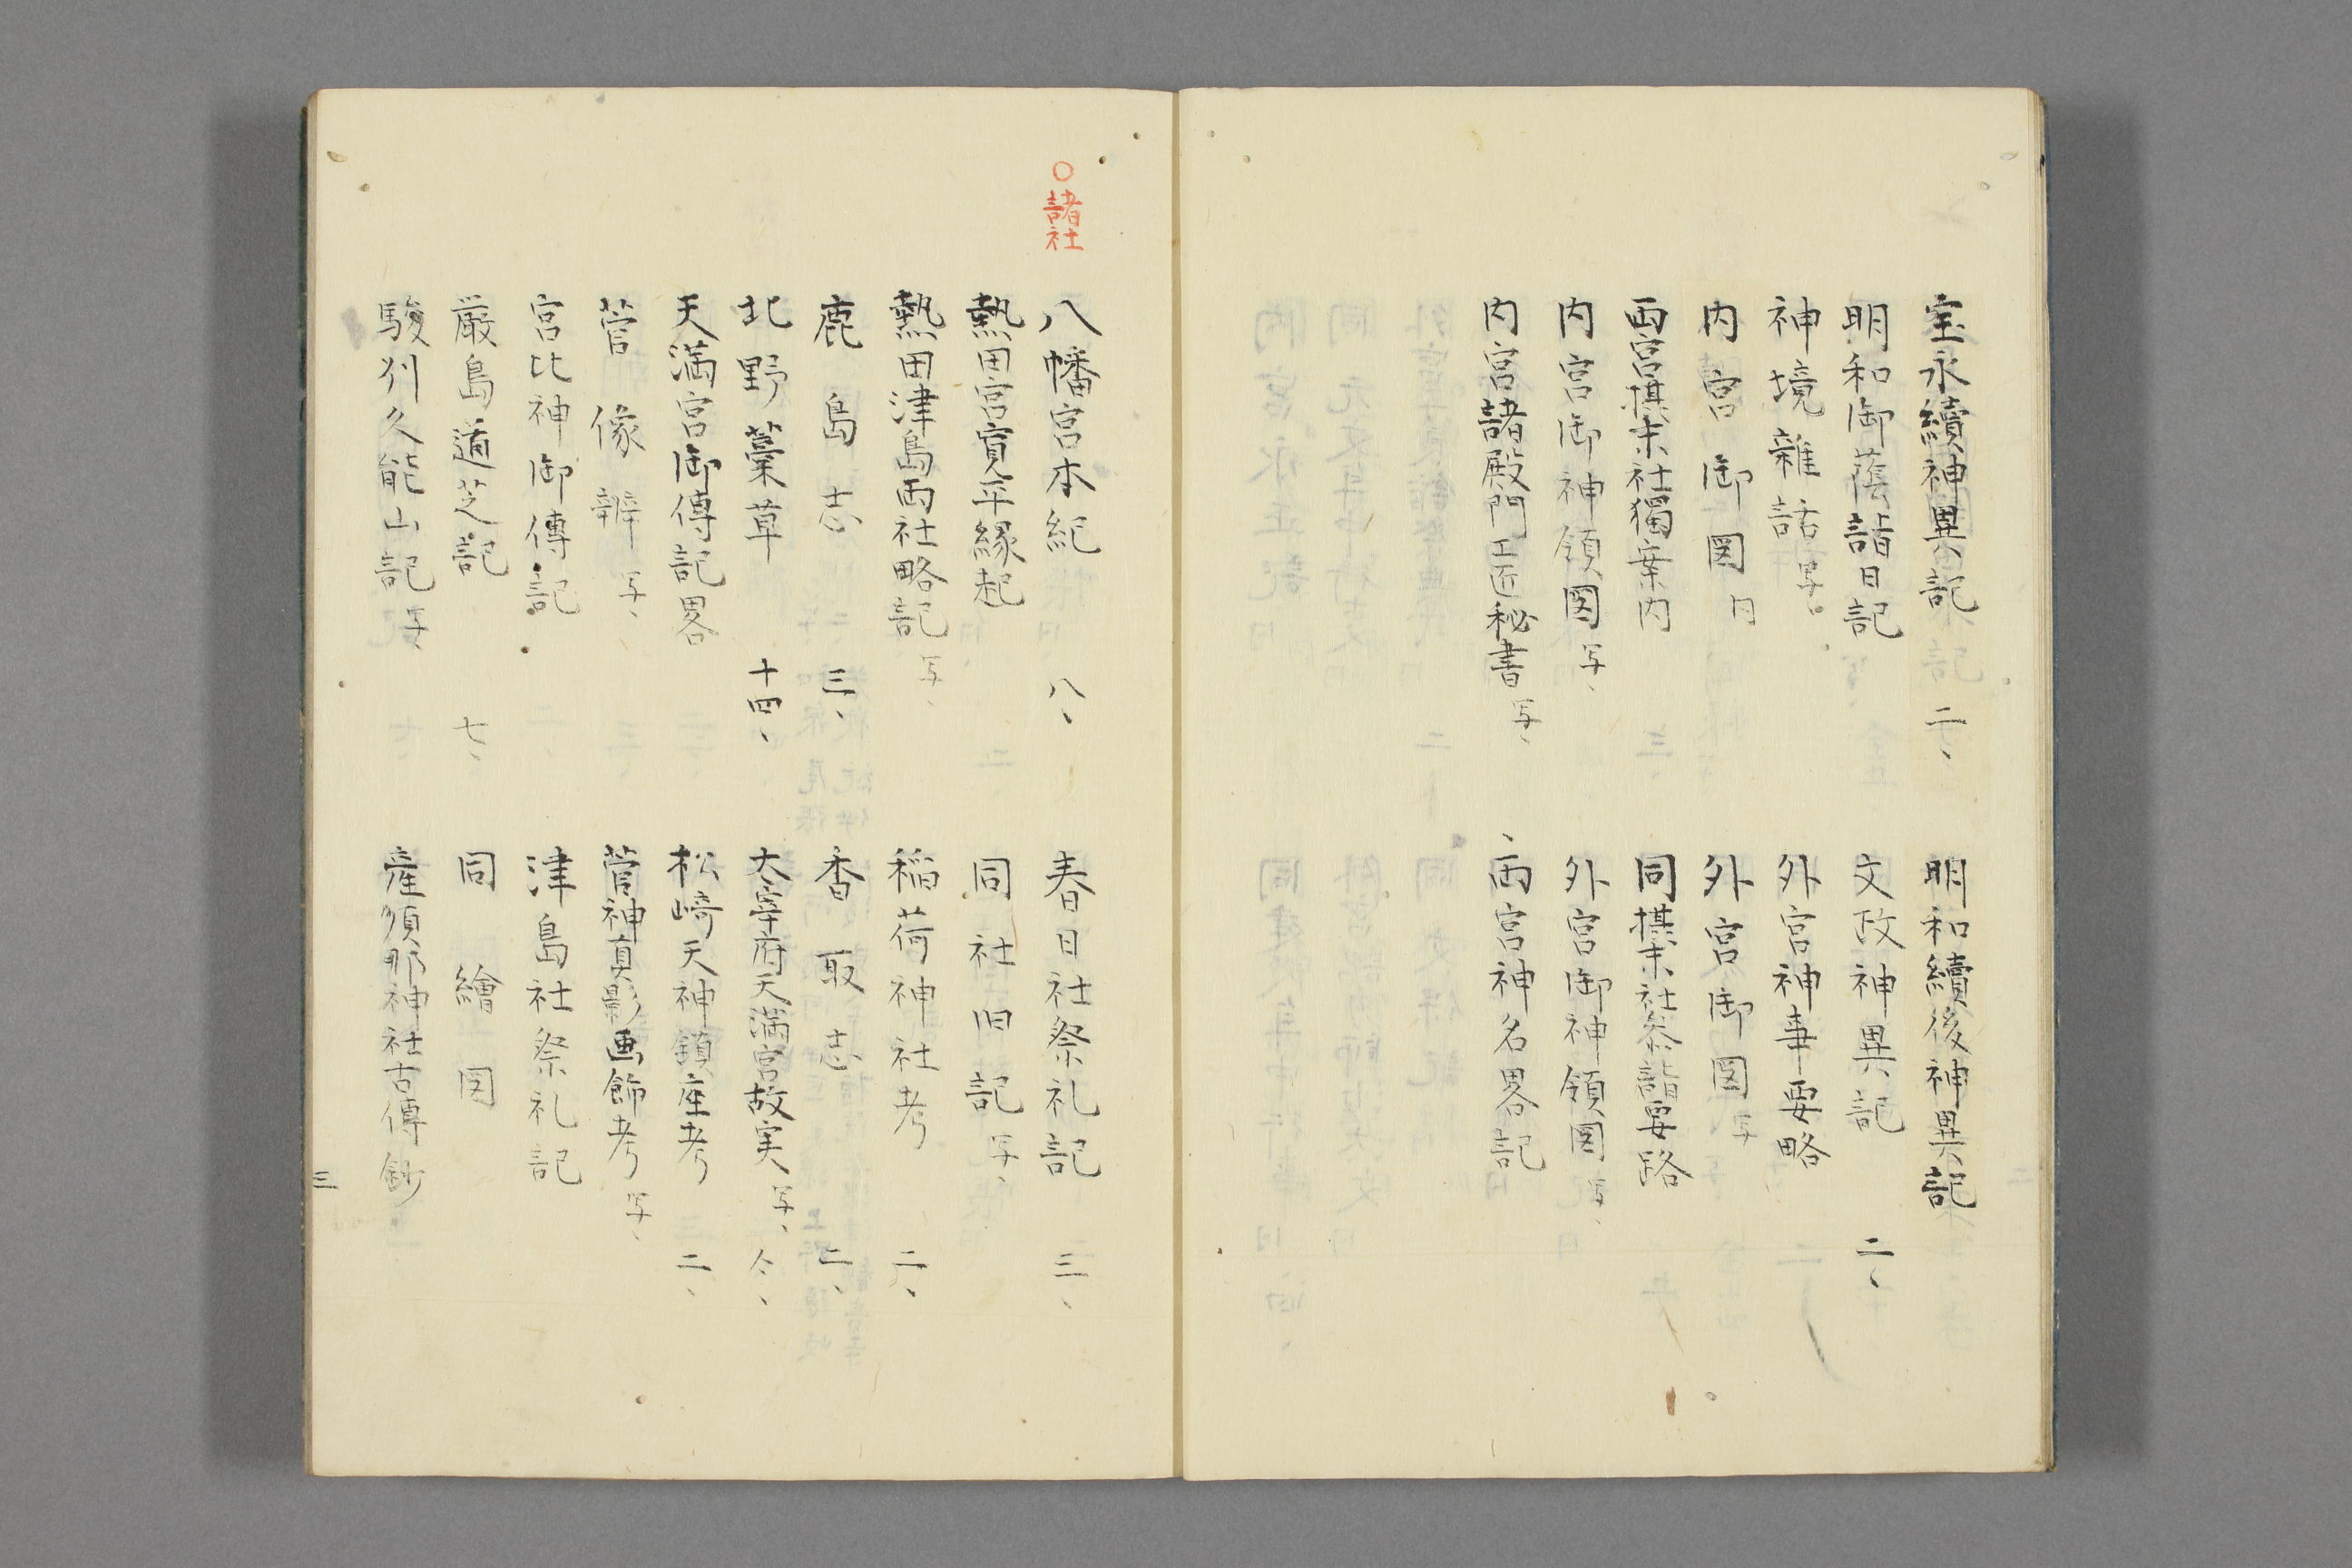 宝永續神異記 二、
明和續後神異記
明和御蔭詣日記
文政神異記 二、
神境雑話 写、
外宮神事要略
内宮御図 同
外宮御図 写
両宮摂末社獨案内
同摂末社参詣要路
内宮御神領図 写、
外宮御神領図 写、
内宮諸殿門工匠秘書 写、
両宮神名畧記
○諸社
八幡宮本紀 八、
春日社祭礼記 三、
熱田宮寛平縁起
同社旧記 写、
熱田津島両社略記 写、
稲荷神社考 二、
鹿島志 三、
香取志 二、
北野藁草 十四、
太宰府天満宮故実 写、 仝、
天満宮御傳記畧
松崎天神鎮座考 二、
菅像辨 写、
菅神真影画飾考 写、
宮比神御傳記
津島社祭礼記
厳島道芝記 七、
同繪図
駿州久能山記 写、
産須那神社古傳鈔
三